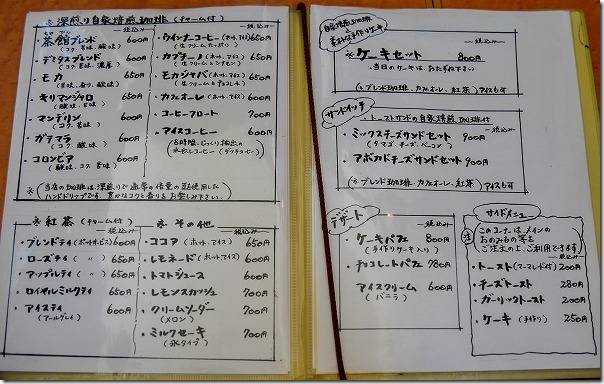 深煎り自家焙煎珈琲 (チャーム付)
税込み
・茶館ブレンド 600円
(コク、苦味、酸味)
・デミタスブレンド 600円
(コク、苦味、濃厚)
・モカ 650円
(甘味、香り、酸味)
・キリマンジャロ 650円
(酸味、甘味)
・マンデリン 600円
(コク、苦味)
・ガテマラ 600円
(酸味、コク)
・コロンビア 600円
(酸味、コク、苦味)
税込み
・ウインナーコーヒー(ホット、アイス) 650円
(生クリームたっぷり)
・カプチーノ(ホット、アイス) 650円
(生クリームとシナモン)
・モカジャバ(ホット、アイス) 650円
(生クリームとチョコレート)
・カフェオーレ(ホット、アイス) 600円
・コーヒーフロート 700円
・アイスコーヒー 600円
(8時間、じっくり抽出の
水出しコーヒー(ダッチコーヒー))
(当店の珈琲は、深煎りで通常の倍量の豆を使用した
ハンドドリップです。豊かなコクと香りをお楽しみ下さい。)
紅茶 (チャーム付)
税込み
・ブレンドティ(ポットサービス) 600円
・ローズティ ( 〃 ) 650円
・アップルティ ( 〃 ) 650円
・ロイヤルミルクティ 650円
・アイスティ 600円
(アールグレイ)
その他
税込み
・ココア (ホット、アイス) 650円
・レモネード (ホット、アイス) 600円
・トマトジュース 600円
・レモンスカッシュ 700円
・クリームソーダー 700円
(メロン)
・ミルクセーキ 700円
(氷タイプ)
自家焙煎珈琲
と
素朴な手作りケーキ
税込み
ケーキセット 800円
(当日のケーキは、おたずね下さい)
(ブレンド珈琲、カフェオーレ、紅茶) アイスも可
サンドイッチ
・トーストサンドの自家焙煎珈琲付
税込み
・ミックスチーズサンドセット 900円
(タマゴ、チーズ、ベーコン)
・アボカドチーズサンドセット 900円
(ブレンド珈琲、カフェオーレ、紅茶) アイスも可
デザート
税込み
・ケーキパフェ 800円
(手作りケーキ入り)
・チョコレートパフェ 780円
・アイスクリーム 600円
(バニラ)
サイドメニュー
注
このコーナーは、メインの
おのみもの等を
ご注文の上、ご利用できます。
税込み
・トースト(マーマレード付) 200円
・チーズトースト 280円
・ガーリックトースト 200円
・ケーキ (手作り) 250円